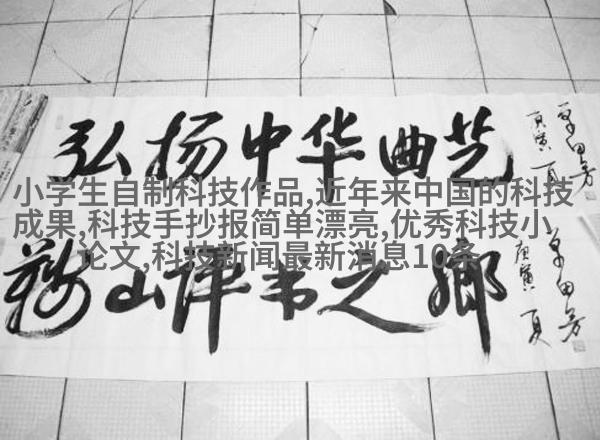 弘扬中华曲艺
庚寅夏
单田芳
小学生自制科技作品,近年来中国的科技
成果,科技手抄报简单漂亮,优秀科技小
论文,科技新闻最新消息10条
鞍山评书之鄉
庚寅夏
单田芳